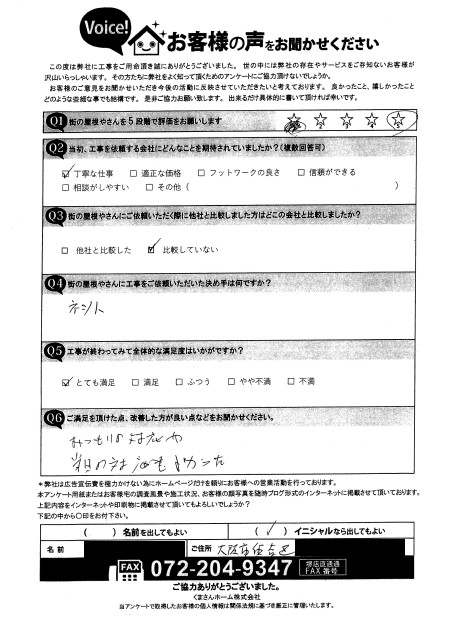 Voice!
お客様の声をお聞かせください
この度は弊社に工事をご用命頂き誠にありがとうございました。世の中には弊社の存在やサービスをご存知ないお客様が
沢山いらっしゃいます。その方たちに弊社をよく知って頂くためのアンケートにご協力頂けないでしょうか。
お客様のご意見をお聞かせいただき今後の活動に反映させていただきたいと考えております。良かったこと、嬉しかったこと
どのような些細な事でも結構です。是非ご協力お願い致します。出来るだけ具体的に書いて頂ければ幸いです。
Q1 街の屋根やさんを5段階で評価をお願いします ☆1 ☆2 ☆3 ☆4 ☆5
Q2 当初、工事を依頼する会社にどんなことを期待されていましたか?(複数回答可)
☑ 丁寧な仕事 □ 適正な価格 □ フットワークの良さ □ 信頼ができる
□ 相談がしやすい □ その他( )
Q3 街の屋根やさんにご依頼いただく際に他社と比較しました方はどこの会社と比較しましたか?
□ 他社と比較した ☑ 比較していない
Q4 街の屋根やさんに工事をご依頼いただいた決め手は何ですか?
ネット
Q5 工事が終わってみて全体的な満足度はいかがですか?
☑ とても満足 □ 満足 □ ふつう □ やや不満 □ 不満
Q6 ご満足を頂けた点、改善した方が良い点などをお聞かせください。
*弊社は広告宣伝費を極力かけない為にホームページだけを頼りにお客様への営業活動を行っております。
本アンケート用紙またはお客様宅の調査風景や施工状況、お客様の顔写真を随時ブログ形式のインターネットに掲載させて頂いております。
上記内容をインターネットや印刷物に掲載させて頂いてもよろしいでしょうか?
下記の中から○印をお付け下さい。
( ) 名前を出してもよい (✓) イニシャルなら出してもよい
名前 ご住所 大阪市住吉区
FAX 072-204-9347 堺店直通
FAX番号
ご協力ありがとうございました。
くまさんホーム株式会社
当アンケートで取得したお客様の個人情報は関係法規に基づき厳正に管理いたします。